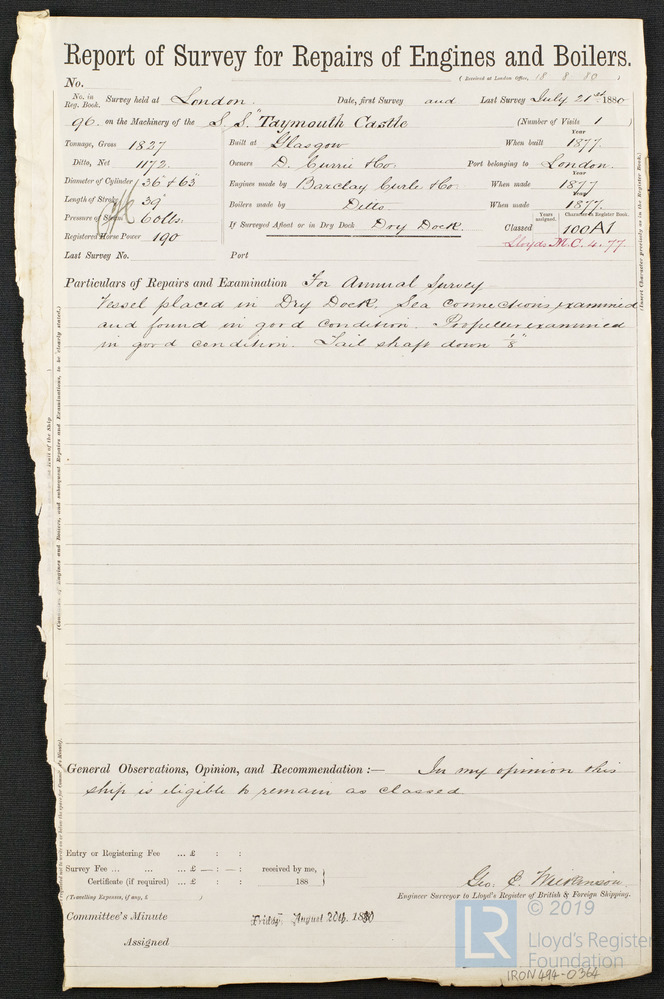 Report of Survey for Repairs of Engines and Boilers.
(Received at London Office, 18 8 80)
No.
No. in Reg. Book. Survey held at London. Date, first Survey and Last Survey July 21st 1880
96. on the Machinery of the S. S. "Taymouth Castle (Number of Visits 1)
Tonnage, Gross 1827 Built at Glasgow When built Year 1877.
Ditto, Net 1172. Owners D. Currie & Co. Port belonging to London.
Diameter of Cylinder 36" & 63" Engines made by Barclay Curle & Co. When made Year 1877
Length of Stroke 39" Boilers made by Ditto When made Year 1877.
Pressure of Steam 60 lbs. If Surveyed Afloat or in Dry Dock Dry Dock. Classed Years assigned. Character in Register Book. 100A1
Registered Horse Power 190 Lloyds M.C. 4.77
Last Survey No. Port
Particulars of Repairs and Examination For Annual Survey
Vessel placed in Dry Dock. Sea Connections examined
and found in good condition. Propeller examined
in good condition. Tail shaft down 1/8"
(Insert Character precisely as in the Register Book.)
General Observations, Opinion, and Recommendation :— In my opinion this
ship is eligible to remain as classed
Entry or Registering Fee ... £ : :
Survey Fee ... ... ... £ — : — : received by me,
Certificate (if required) ... £ : : 188
(Travelling Expenses, if any, £ )
Geo. C. Wilkinson
Engineer Surveyor to Lloyd's Register of British & Foreign Shipping.
Committee's Minute Friday, August 20th. 1880
Assigned
© 2019
LR
Lloyd's Register
Foundation
IRON494-0364